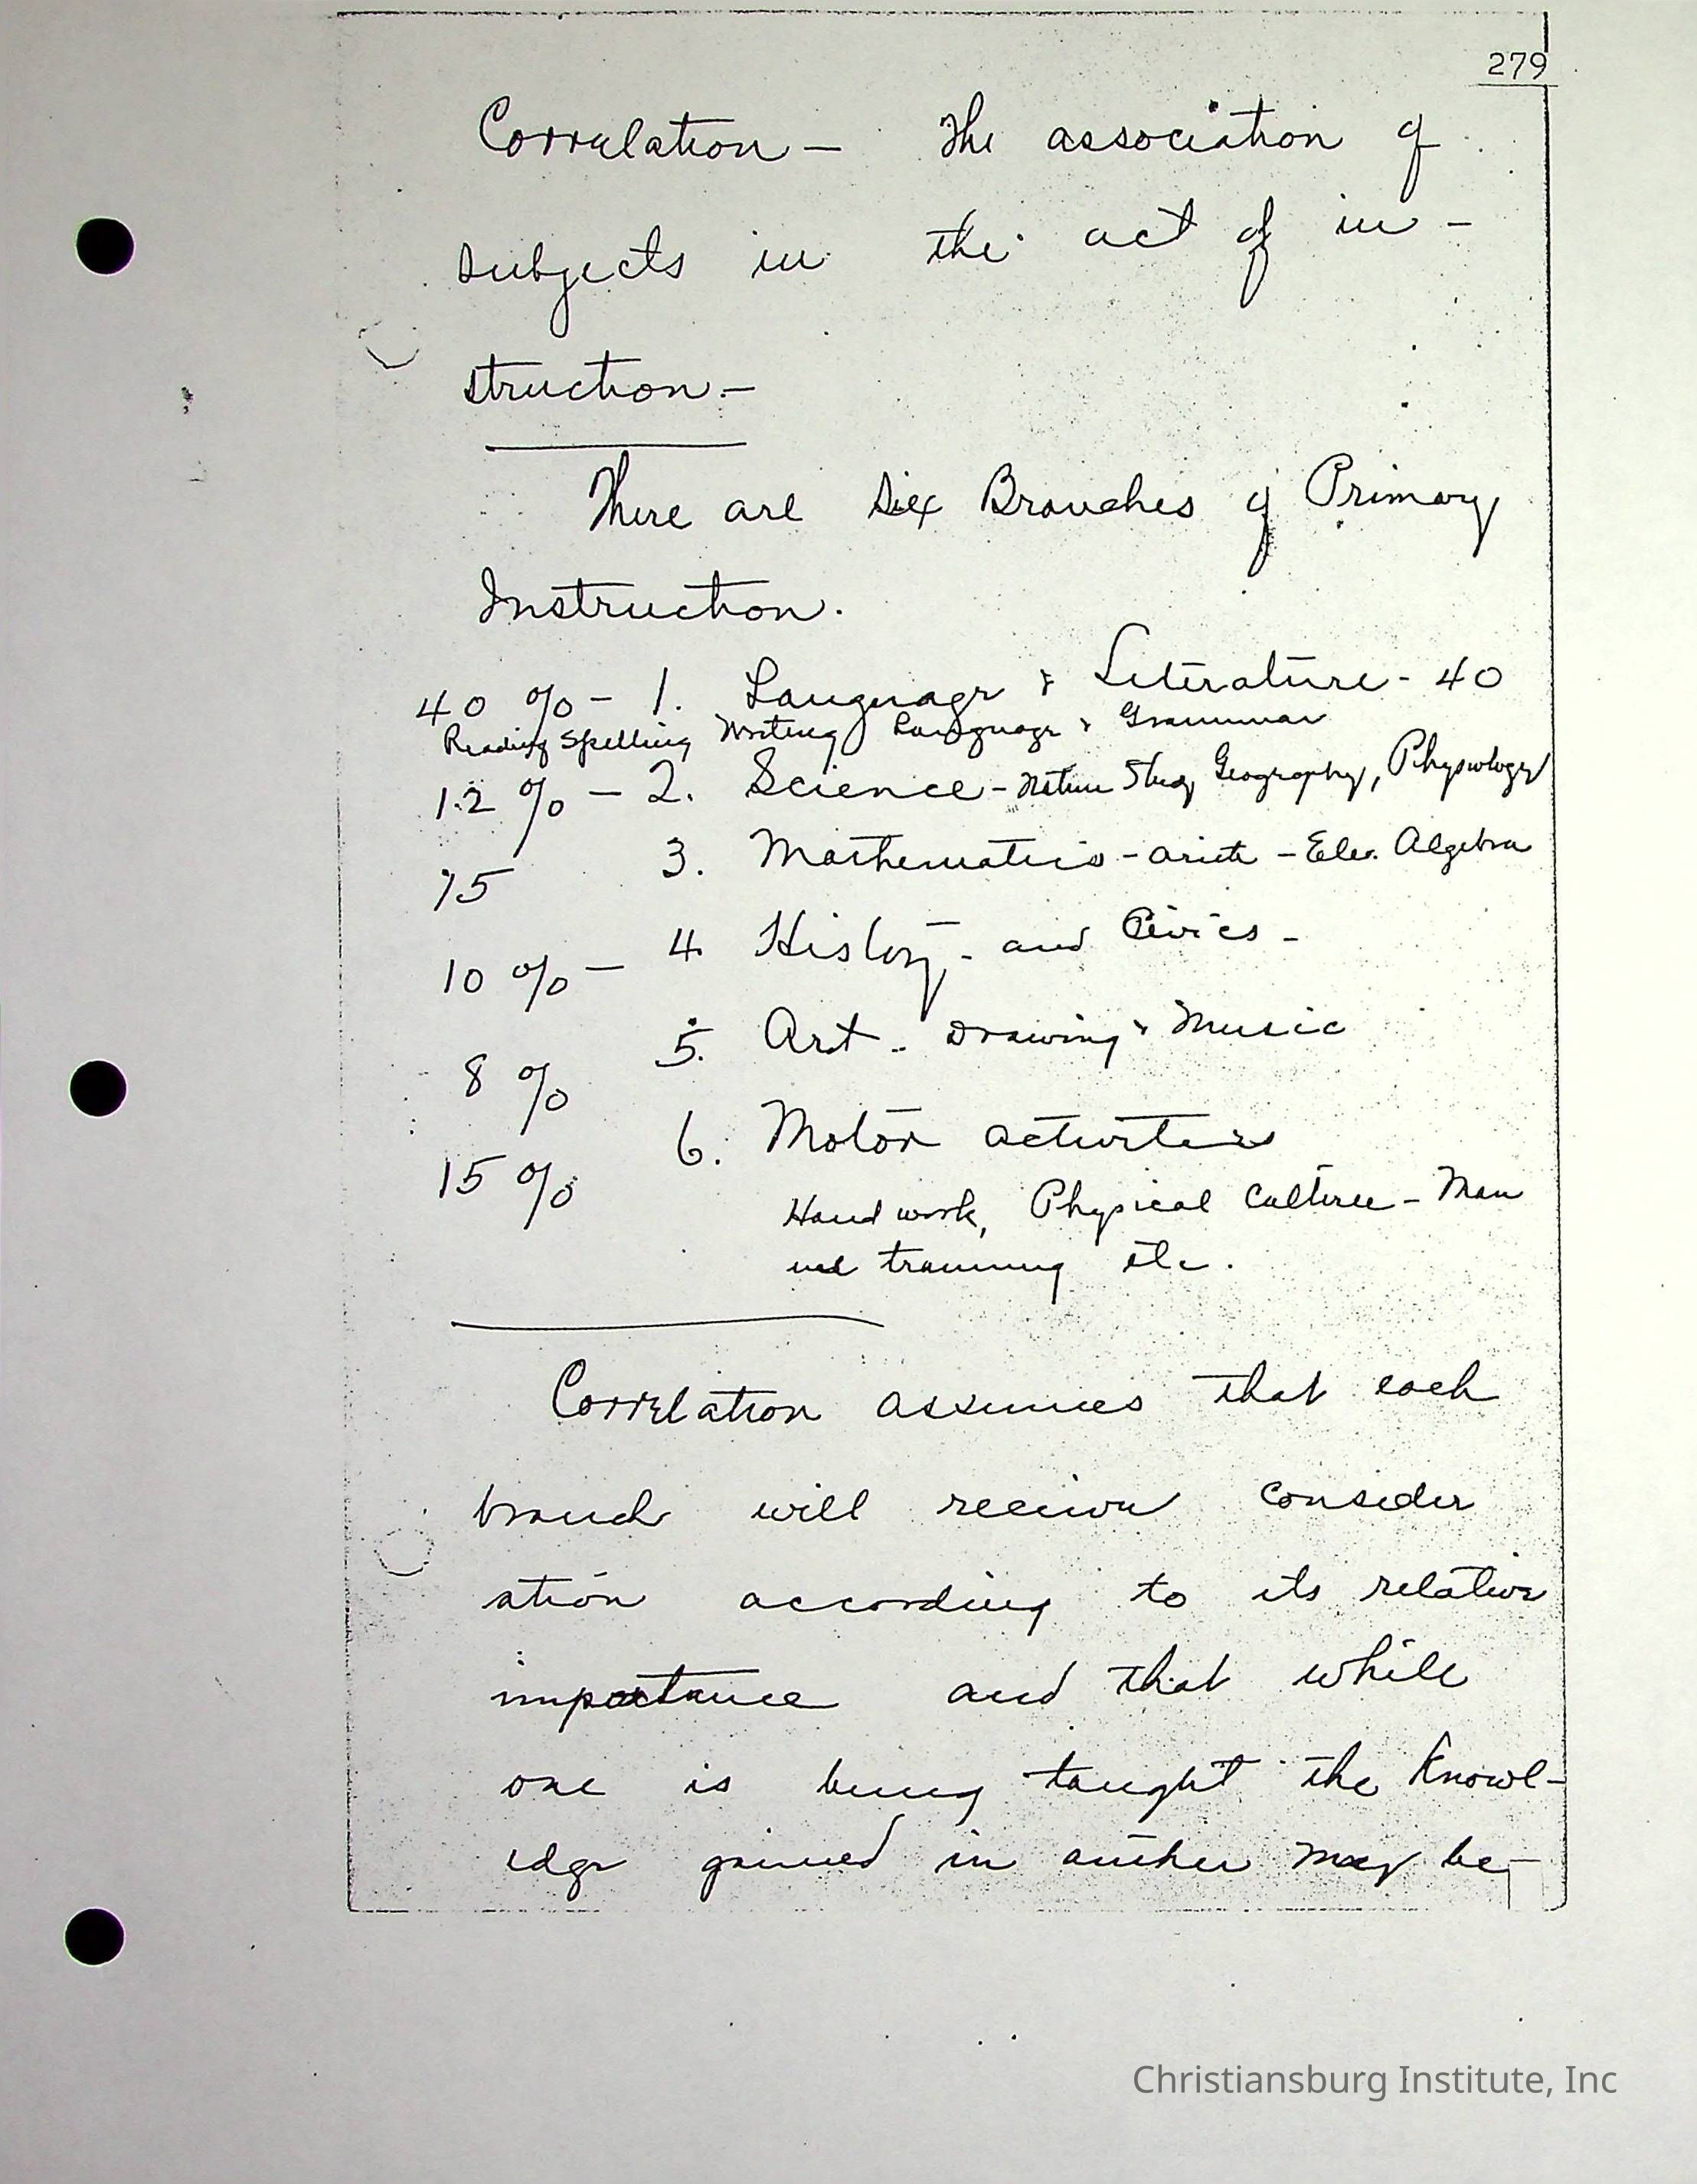 279
Correlation — The association of
subjects in the act of in-
struction.—
There are six Branches of Primary
Instruction.
40 % - 1. Language & Literature - 40
Reading Spelling Writing Language & Grammar
12 % - 2. Science - Nature Study Geography, Physiology
15 3. Mathematics - arith - Ele. Algebra
10 % - 4 History - and Civics -
8 % 5. Art - Drawing & Music
15 % 6. Motor activities
Hand work, Physical Culture - Man
ual training etc.
Correlation assumes that each
branch will receive consider
ation according to its relative
importance and that while
one is being taught the knowl-
edge gained in another may be
Christiansburg Institute, Inc